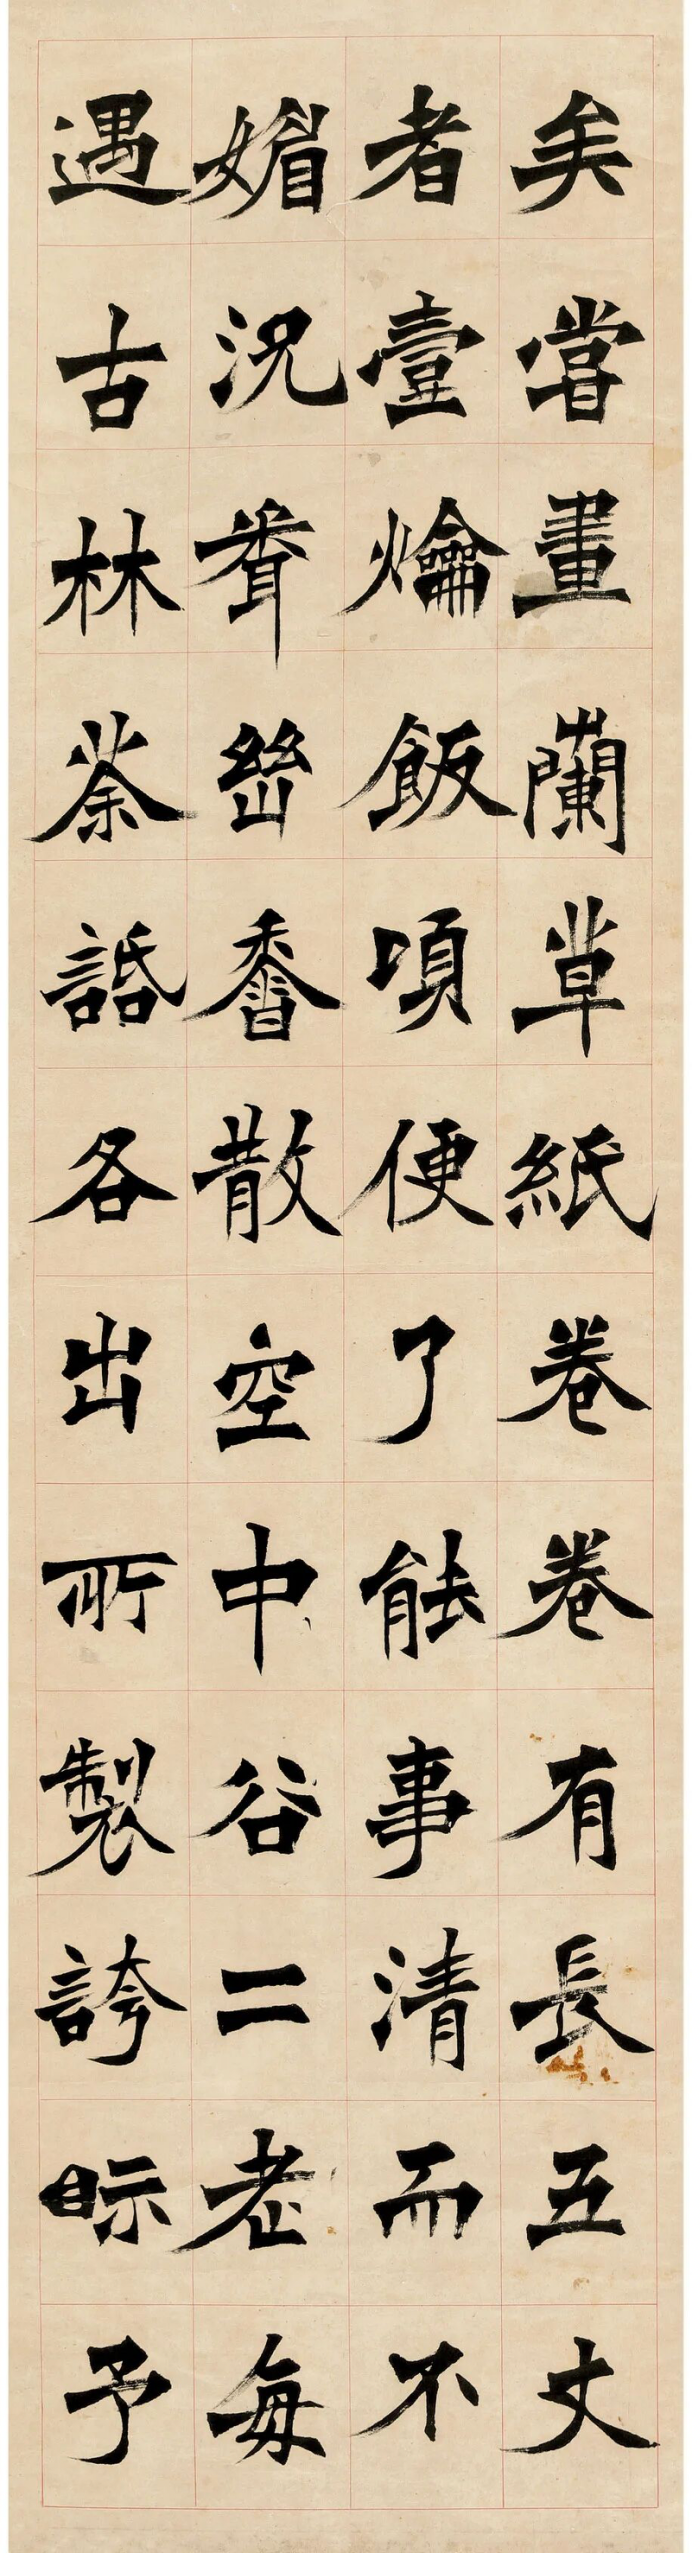 矣嘗畫蘭草紙卷卷有長五丈
者壹爚飯頃便了能事清而不
媚況幽香散空中谷二老每
遇古林荼話各出所製誇眎予